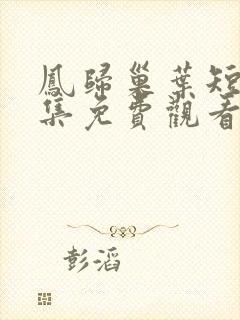 鳳歸巢葉短
集免費觀看
彭滔